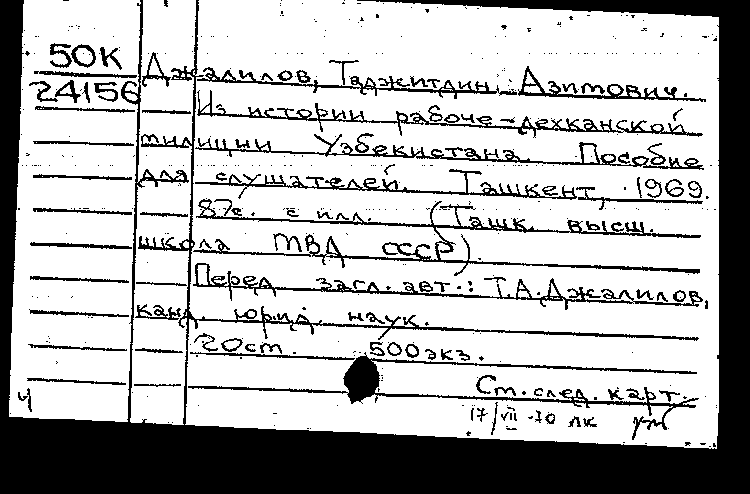 50К
24156
Джалилов, Таджитдин Азимович.
Из истории рабоче-дехканской
милиции Узбекистана. Пособие
для слушателей. Ташкент, 1969.
87с. с илл. (Ташк. высш.
школа МВД СССР).
Перед загл. авт.: Т.А.Джалилов,
канд. юрид. наук.
20см. 500экз.
Ст. след. карт.
17/VII-70 лк
Ч